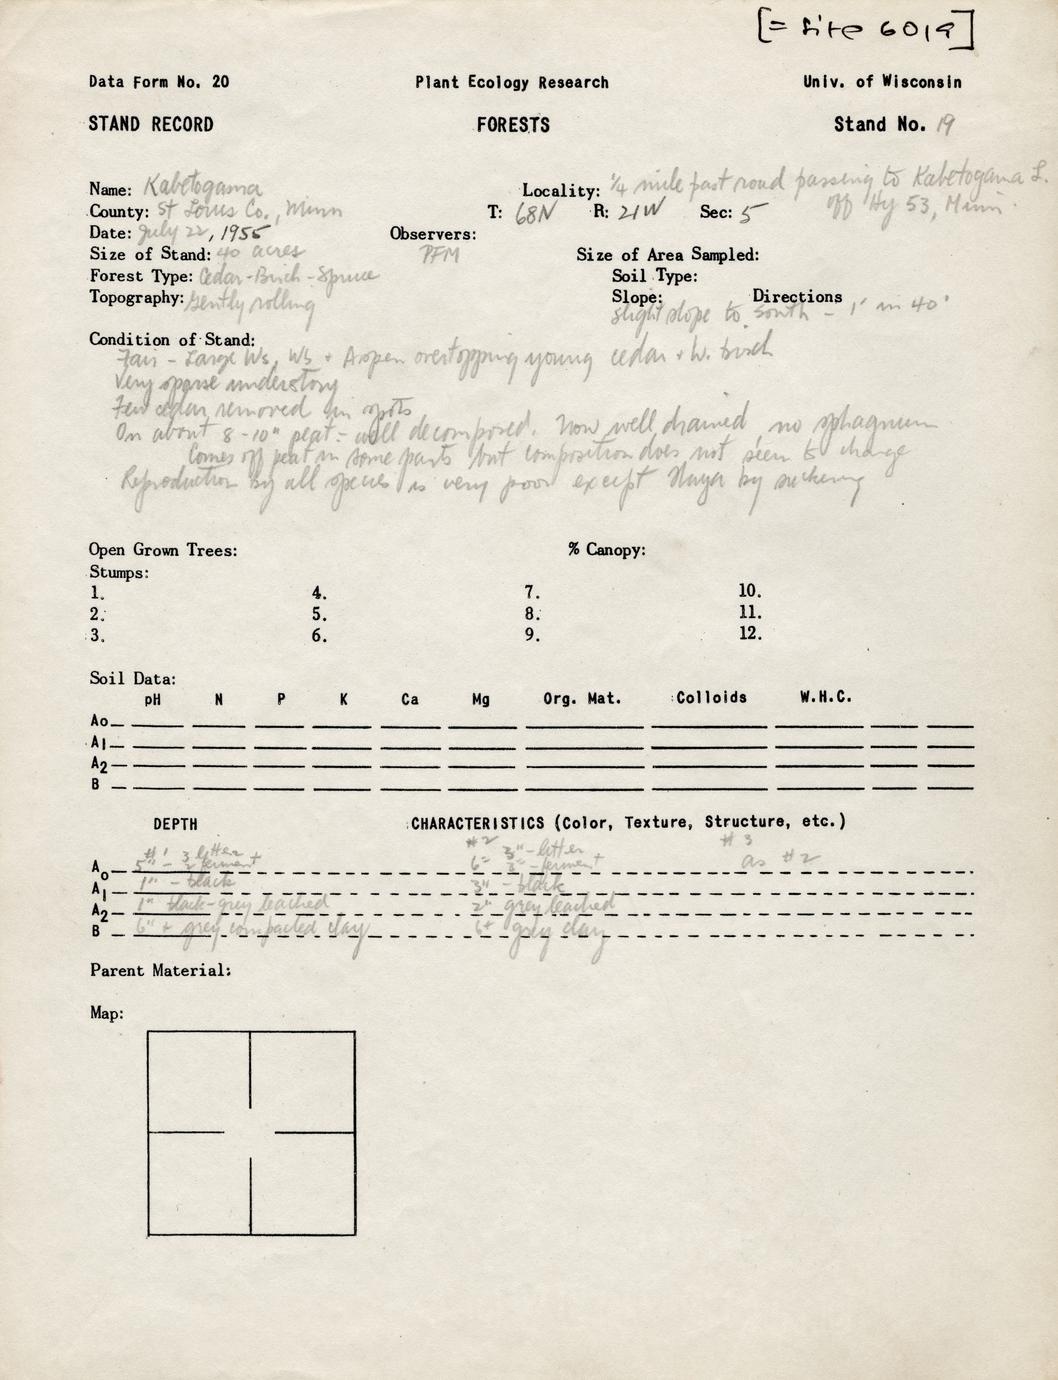 [= Site 6019]
Data Form No. 20 Plant Ecology Research Univ. of Wisconsin
STAND RECORD FORESTS Stand No. 19
Name: Kabetogama Locality: 1/4 mile past road passing to Kabetogama L.
off Hy 53, Minn.
County: St Louis Co., Minn T: 68N R: 21W Sec: 5
Date: July 22, 1955 Observers:
PFM
Size of Stand: 40 acres Size of Area Sampled:
Forest Type: Cedar-Birch-Spruce Soil Type:
Topography: Gently rolling Slope: Directions
slight slope to south - 1' in 40'
Condition of Stand:
Fair - Large Ws, Wb + Aspen overtopping young cedar + W. birch
Very sparse understory
Few cedar removed in spots
On about 8-10" peat - well decomposed. Now well drained, no sphagnum
Comes off peat in some parts but composition does not seem to change
Reproduction by all species is very poor except by suckering
Open Grown Trees: % Canopy:
Stumps:
1. 4. 7. 10.
2. 5. 8. 11.
3. 6. 9. 12.
Soil Data:
pH N P K Ca Mg Org. Mat. Colloids W.H.C.
Ao
A1
A2
B
DEPTH CHARACTERISTICS (Color, Texture, Structure, etc.)
#1 3 litter #2 3"-litter #3
Ao 5" - 2 ferment 6" 3"-ferment as #2
A1 1" - black 3" - black
A2 1" black-grey leached 2" grey leached
B 6" + grey compacted clay 6+ grey clay
Parent Material:
Map: